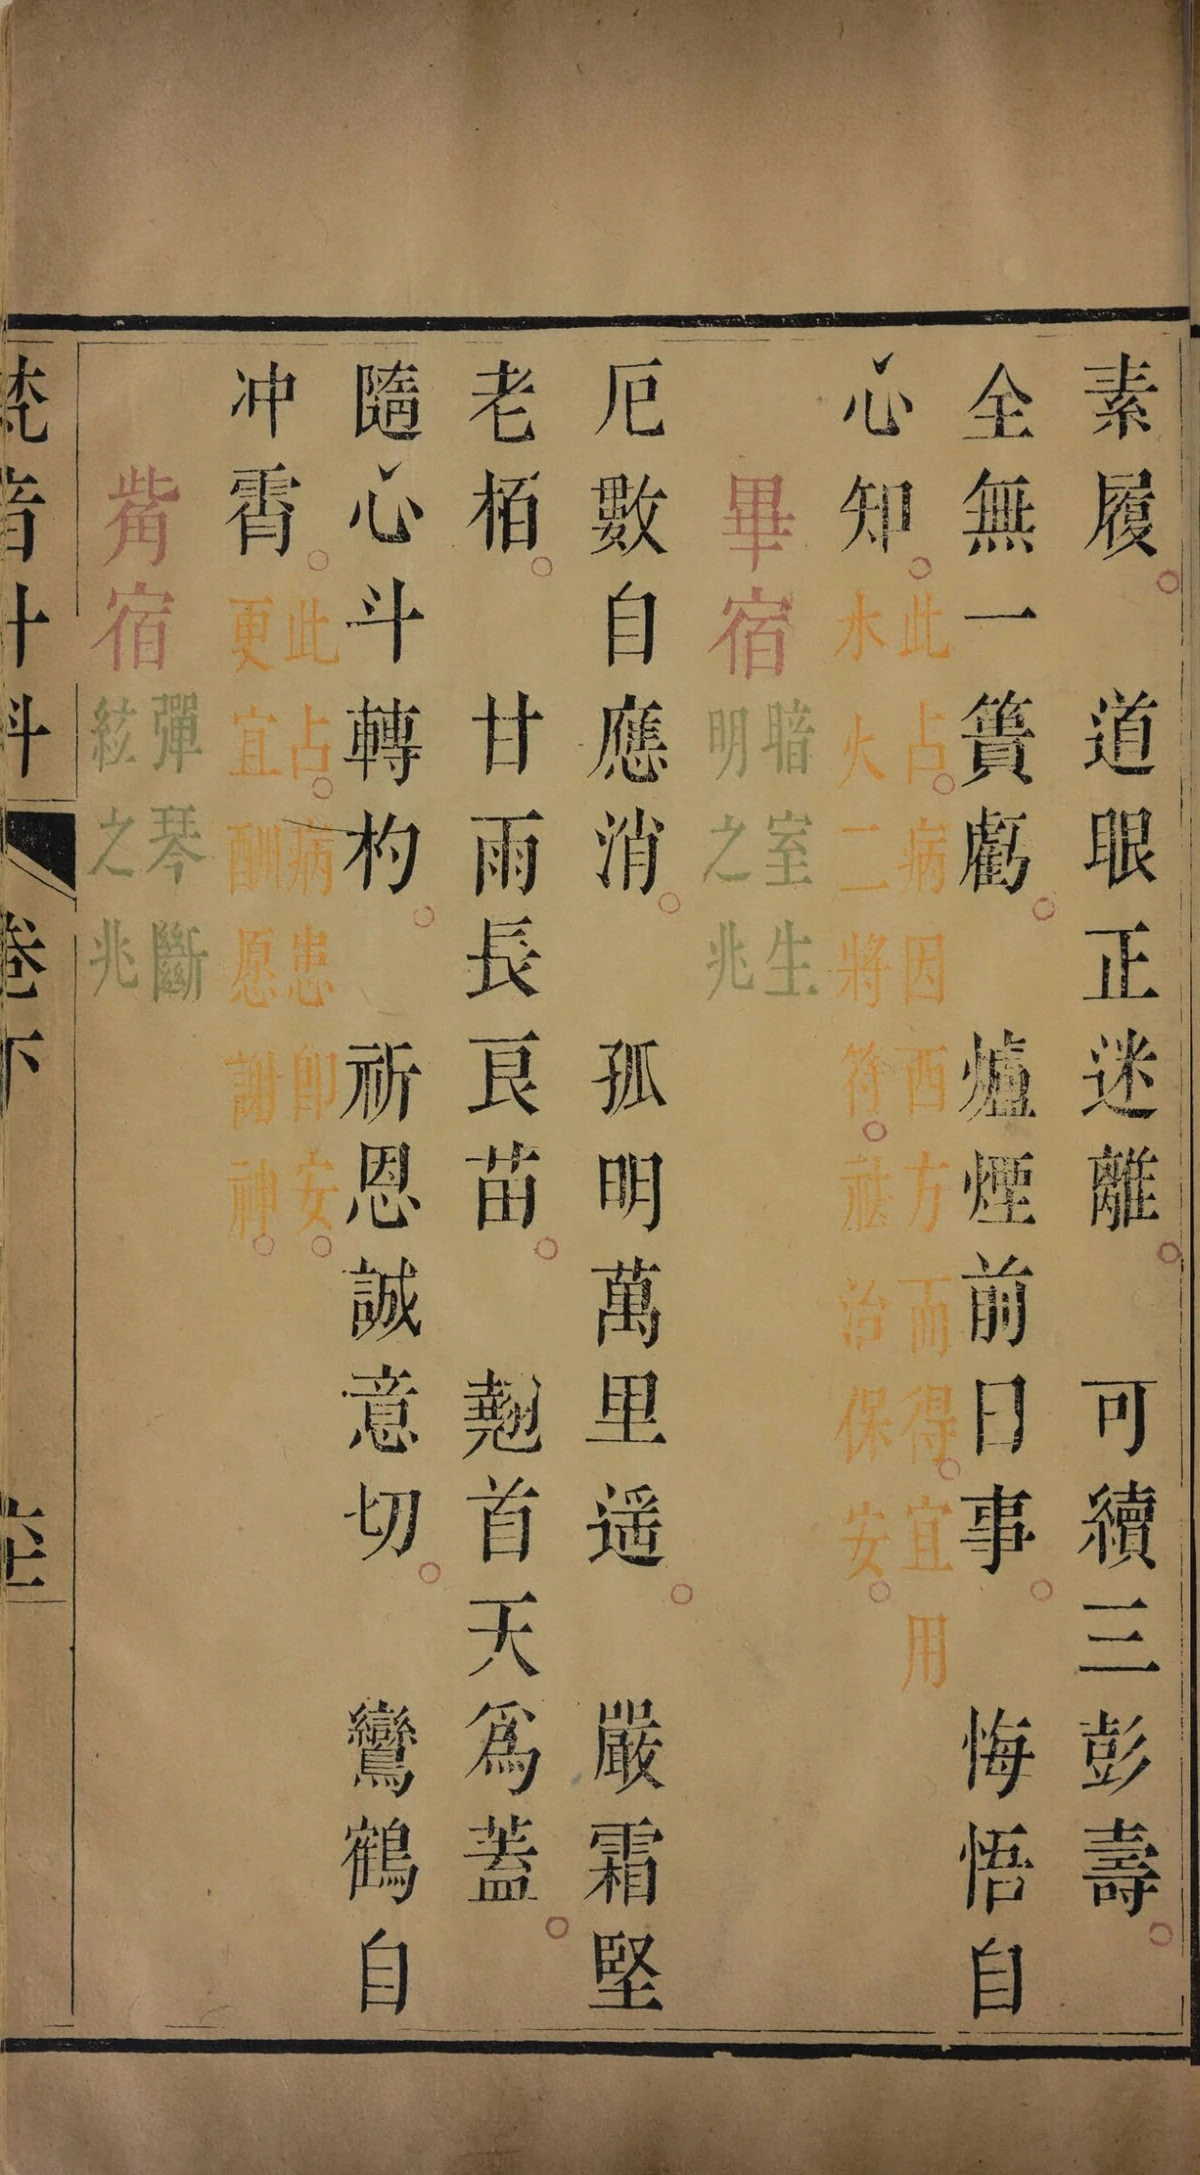 素履。道眼正迷離。可續三彭壽。
全無一簣虧。爐煙前日事。悔悟自
心知。此占。病因西方而得。宜用
水火二將符。祛治保安。
畢宿 暗室生
明之兆
厄數自應消。孤明萬里遥。嚴霜堅
老栢。甘雨長良苗。翹首天為蓋。
隨心斗轉杓。祈恩誠意切。鸞鶴自
冲霄。此占。病患即安。
更宜酬愿謝神。
觜宿 彈琴斷
絃之兆
梵音斗科 卷下